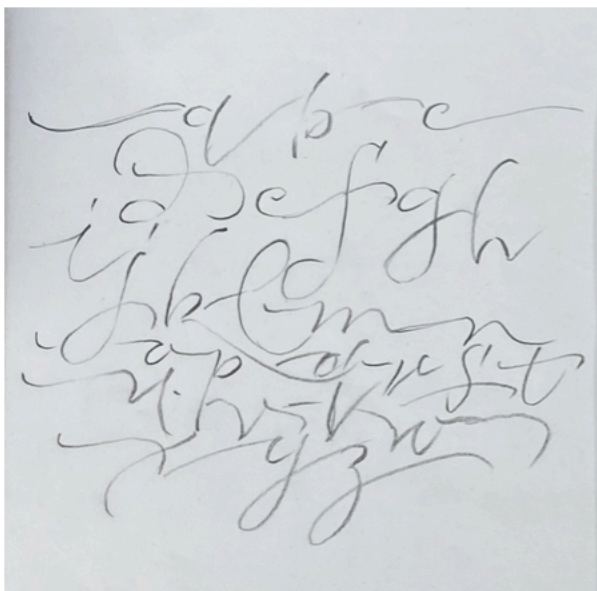 a b c
d e f g h
i j k l m n
o p q r s t
u v w
x y z